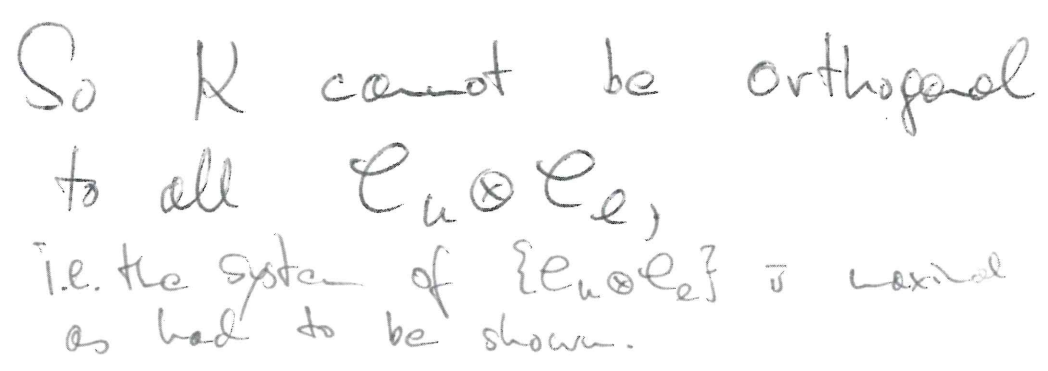 So K cannot be orthogonal
to all e_n ⊗ e_l,
i.e. the system of {e_n ⊗ e_l} is maximal
as had to be shown.